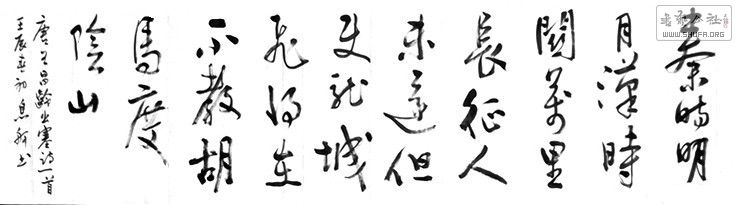 秦時明
月漢時
關萬里
長征人
未還但
使龍城
飛將在
不教胡
馬度
陰山
唐王昌齡出塞詩一首
壬辰初息軒书
公社
WWW.SHUFA.ORG